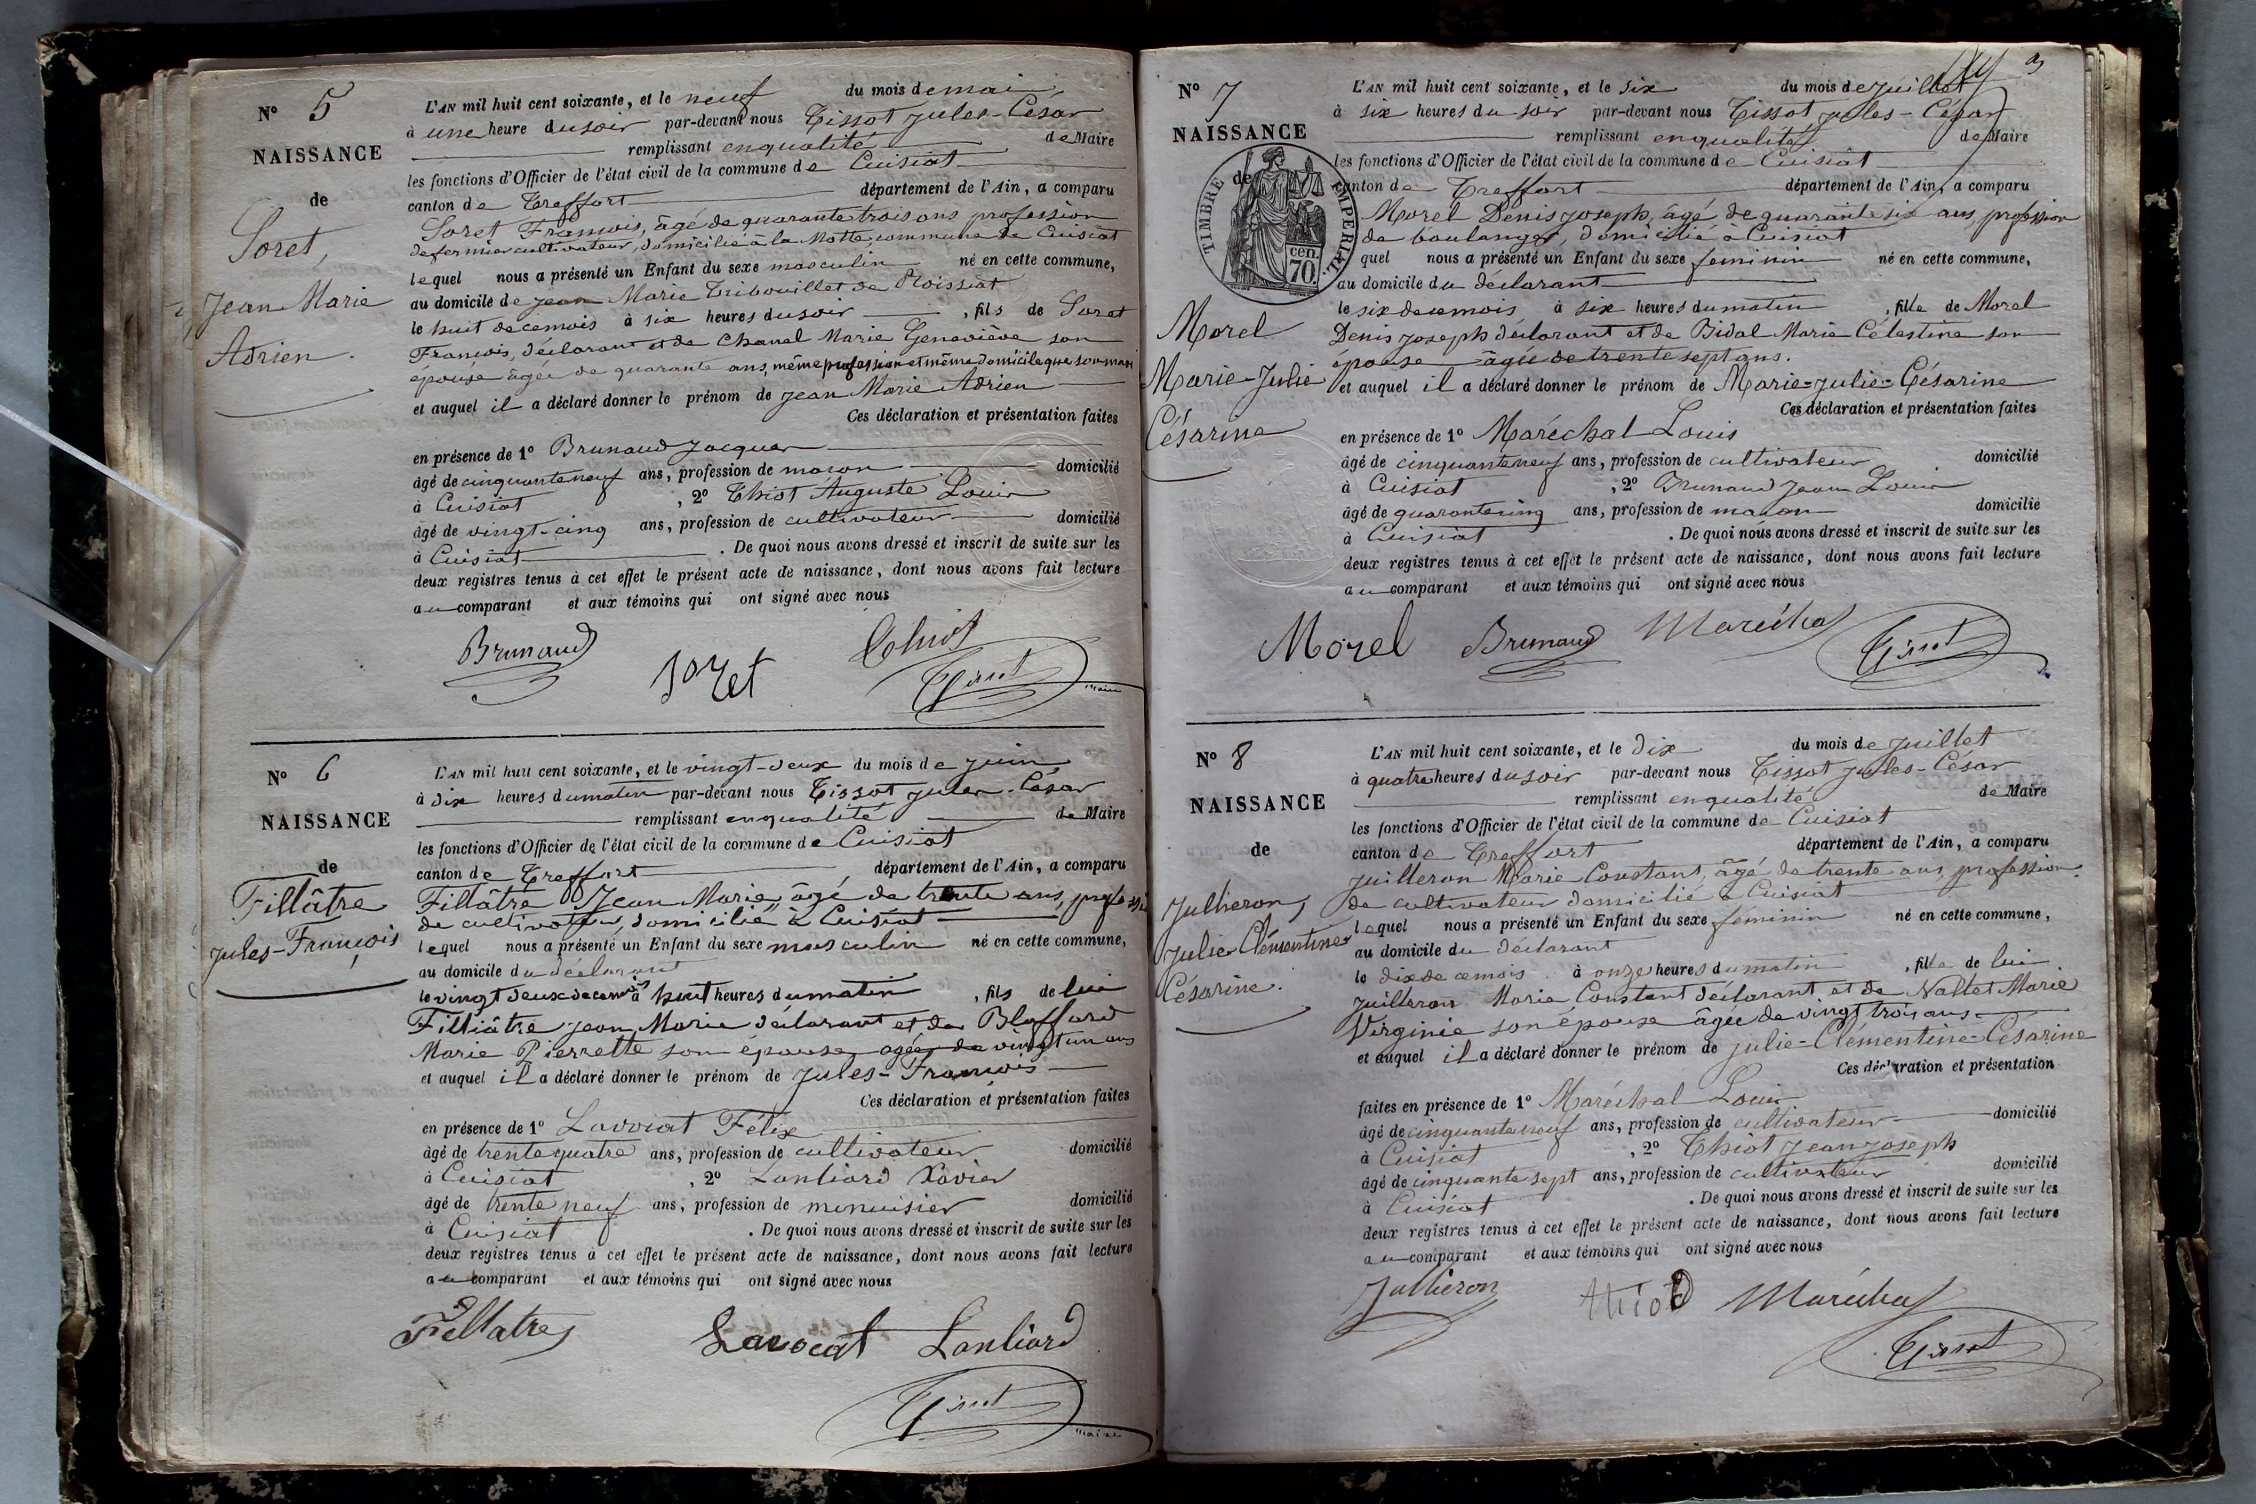 N° 5
NAISSANCE
de
Soret,
Jean Marie
Adrien.
L'AN mil huit cent soixante, et le neuf du mois de mai
à une heure du soir par-devant nous Tissot Jules-César
remplissant en qualité de Maire
les fonctions d'Officier de l'état civil de la commune de Cuisiat
canton de Treffort département de l'Ain, a comparu
Soret François, âgé de quarante trois ans profession
de fermier cultivateur, domicilié à la Motte commune de Cuisiat
lequel nous a présenté un Enfant du sexe masculin né en cette commune,
au domicile de Jean Marie Tribouillet de Roissiat
le huit de ce mois à six heures du soir, fils de Soret
François, déclarant et de Chanel Marie Geneviève son
épouse âgée de quarante ans, même profession et même domicile que son mari
et auquel il a déclaré donner le prénom de Jean Marie Adrien
Ces déclaration et présentation faites
en présence de 1° Brunaud Jacques
âgé de cinquante neuf ans, profession de maçon domicilié
à Cuisiat, 2° Thiot Auguste Louis
âgé de vingt-cinq ans, profession de cultivateur domicilié
à Cuisiat. De quoi nous avons dressé et inscrit de suite sur les
deux registres tenus à cet effet le présent acte de naissance, dont nous avons fait lecture
au comparant et aux témoins qui ont signé avec nous
Brunaud Soret Thiot
Tissot maire
N° 6
NAISSANCE
de
Fillâtre
Jules-François
L'AN mil huit cent soixante, et le vingt-deux du mois de juin
à dix heures du matin par-devant nous Tissot Jules-César
remplissant en qualité de Maire
les fonctions d'Officier de l'état civil de la commune de Cuisiat
canton de Treffort département de l'Ain, a comparu
Fillâtre Jean Marie, âgé de trente ans, profession
de cultivateur, domicilié à Cuisiat
lequel nous a présenté un Enfant du sexe masculin né en cette commune,
au domicile du déclarant
le vingt deux de ce mois à huit heures du matin, fils de lui
Filliâtre Jean Marie déclarant et de Blaffard
Marie Pierrette son épouse, agée de vingt un ans
et auquel il a déclaré donner le prénom de Jules-François
Ces déclaration et présentation faites
en présence de 1° Lavocat Félix
âgé de trente quatre ans, profession de cultivateur domicilié
à Cuisiat, 2° Lanliard Xavier
âgé de trente neuf ans, profession de menuisier domicilié
à Cuisiat. De quoi nous avons dressé et inscrit de suite sur les
deux registres tenus à cet effet le présent acte de naissance, dont nous avons fait lecture
au comparant et aux témoins qui ont signé avec nous
Fillatre Lavocat Lanliard
Tissot maire
N° 7
NAISSANCE
de
TIMBRE IMPERIAL
70 cen.
Morel
Marie-Julie
Césarine
L'AN mil huit cent soixante, et le six du mois de juillet
à six heures du soir par-devant nous Tissot Jules-César
remplissant en qualité de Maire
les fonctions d'Officier de l'état civil de la commune de Cuisiat
canton de Treffort département de l'Ain, a comparu
Morel Denis Joseph, âgé de quarante six ans, profession
de boulanger, domicilié à Cuisiat
quel nous a présenté un Enfant du sexe feminin né en cette commune,
au domicile du déclarant
le six de ce mois à six heures du matin, fille de Morel
Denis Joseph déclarant et de Bidal Marie Célestine son
épouse âgée de trente sept ans.
et auquel il a déclaré donner le prénom de Marie-Julie-Césarine
Ces déclaration et présentation faites
en présence de 1° Maréchal Louis
âgé de cinquante neuf ans, profession de cultivateur domicilié
à Cuisiat, 2° Brunaud Jean Louis
âgé de quarante cinq ans, profession de maçon domicilié
à Cuisiat. De quoi nous avons dressé et inscrit de suite sur les
deux registres tenus à cet effet le présent acte de naissance, dont nous avons fait lecture
au comparant et aux témoins qui ont signé avec nous
Morel Brunaud Maréchal
Tissot
N° 8
NAISSANCE
de
Julheron,
Julie Clémentine
Césarine.
L'AN mil huit cent soixante, et le dix du mois de juillet
à quatre heures du soir par-devant nous Tissot Jules-César
remplissant en qualité de Maire
les fonctions d'Officier de l'état civil de la commune de Cuisiat
canton de Treffort département de l'Ain, a comparu
Juilleron Marie Constant, âgé de trente ans, profession
de cultivateur domicilié à Cuisiat
lequel nous a présenté un Enfant du sexe feminin né en cette commune,
au domicile du déclarant
le dix de ce mois à onze heures du matin, fille de lui
Juilleron Marie Constant déclarant et de Nallet Marie
Virginie son épouse âgée de vingt trois ans
et auquel il a déclaré donner le prénom de Julie-Clémentine-Césarine
Ces déclaration et présentation
faites en présence de 1° Maréchal Louis
âgé de cinquante neuf ans, profession de cultivateur domicilié
à Cuisiat, 2° Thiot Jean Joseph
âgé de cinquante sept ans, profession de cultivateur domicilié
à Cuisiat. De quoi nous avons dressé et inscrit de suite sur les
deux registres tenus à cet effet le présent acte de naissance, dont nous avons fait lecture
au comparant et aux témoins qui ont signé avec nous
Julheron Thiot Maréchal
Tissot